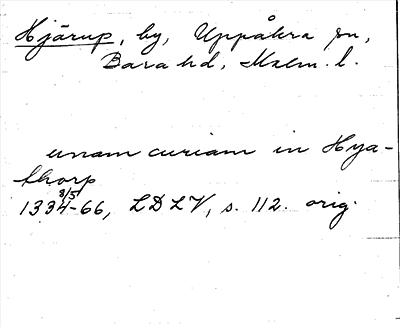 Hjärup, by, Uppåkra sn,
Bara hd, Malm. l.
unam curiam in Hya-
thorp
3/5
1334-66, LDLV, s. 112. orig.